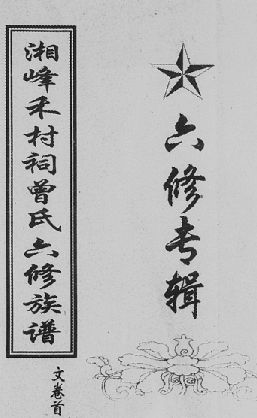 六修专辑
湘峰禾村祠曾氏六修族谱
文卷首